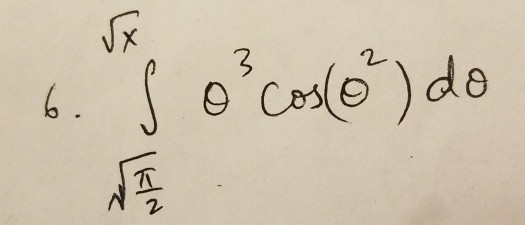 6. ∫_{√(π/2)}^{√x} θ³ cos(θ²) dθ